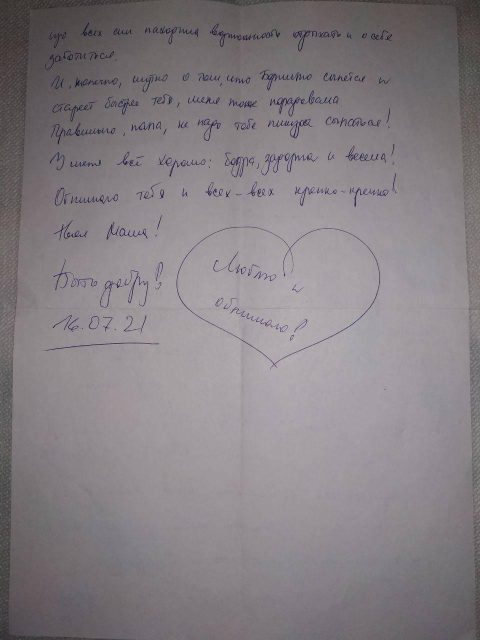 всех сил находила возможность отдыхать и о себе
заботиться.
И, конечно, шутка о том, что сыпется и
стареет быстрее тебя, меня тоже порадовала
Правильно, папа, не надо тебе сыпаться!
У меня всё хорошо: бодра, задорна и весела!
Обнимаю тебя и всех-всех крепко-крепко!
Маша!
Быть добру!
16.07.21
Люблю и
обнимаю!